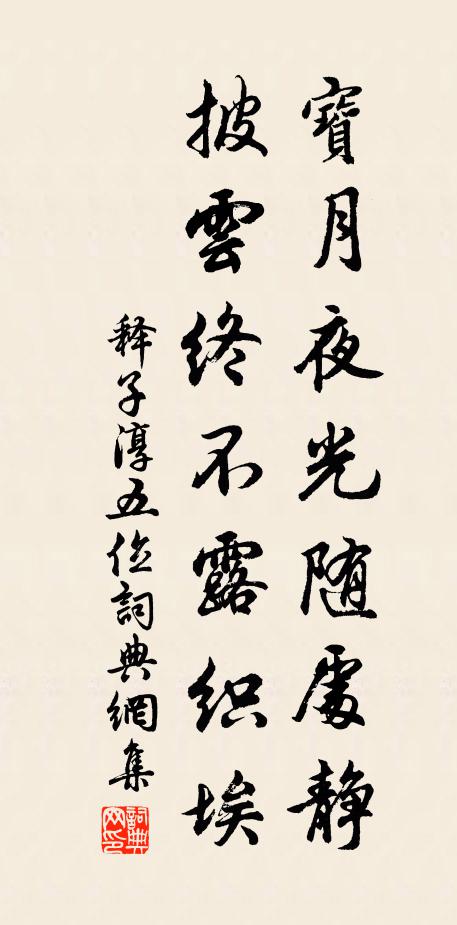 寶月夜光随處静
披雲終不露织埃
释子淳五位詞典網集
詞典網印